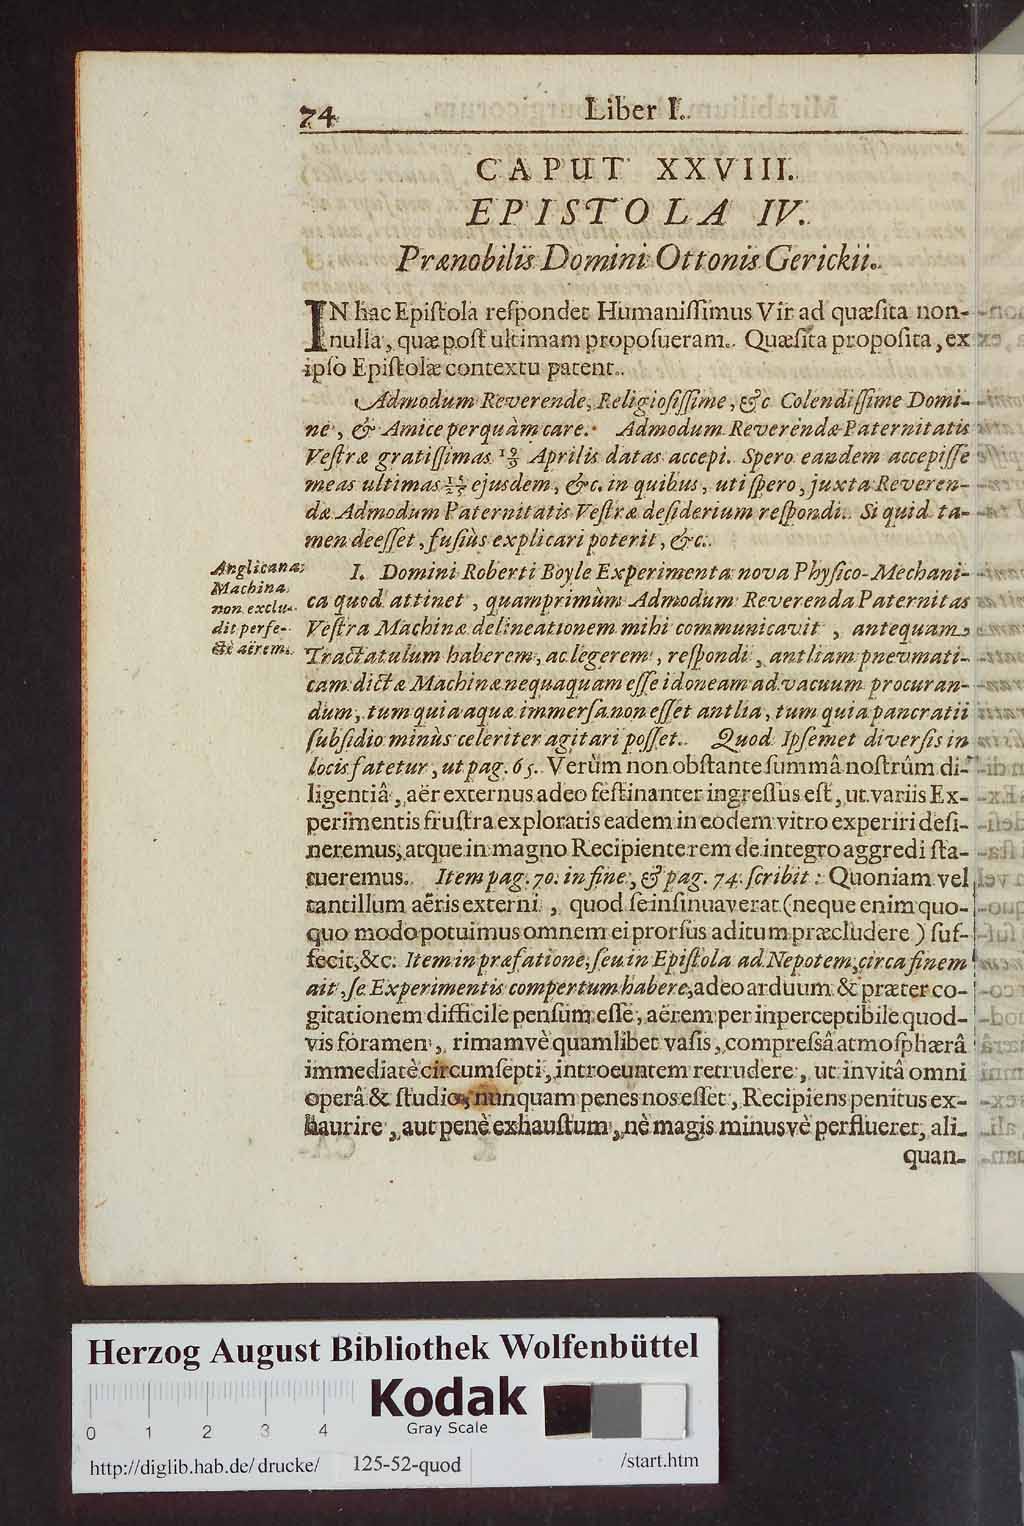 74 Liber I.
CAPUT XXVIII.
EPISTOLA IV.
Prænobilis Domini Ottonis Gerickii.
IN hac Epiſtola reſpondet Humaniſſimus Vir ad quæſita non-
nulla, quæ poſt ultimam propoſueram. Quæſita propoſita, ex
ipſo Epiſtolæ contextu patent.
Admodum Reverende, Religioſiſſime, &c Colendiſſime Domi-
ne, & Amice perquàm care. Admodum Reverendæ Paternitatis
Veſtræ gratiſſimas Aprilis datas accepi. Spero eandem accepiſſe
meas ultimas ejusdem, &c. in quibus, uti ſpero, juxta Reveren-
dæ Admodum Paternitatis Veſtræ deſiderium reſpondi. Si quid ta-
men deeſſet, fuſiùs explicari poterit, &c.
Anglicana
Machina
non exclu-
dit perfe-
ctè aërem.
I. Domini Roberti Boyle Experimenta nova Phyſico-Mechani-
ca quod attinet, quamprimùm Admodum Reverenda Paternitas
Veſtra Machinæ delineationem mihi communicavit, antequam
Tractatulum haberem, ac legerem, reſpondi, antliam pnevmati-
cam dictæ Machinæ nequaquam eſſe idoneam ad vacuum procuran-
dum, tum quia aquæ immerſa non eſſet antlia, tum quia pancratii
ſubſidio minùs celeriter agitari poſſet. Quod Ipſemet diverſis in
locis fatetur, ut pag. 65. Verùm non obſtante ſummâ noſtrûm di-
ligentiâ, aër externus adeo feſtinanter ingreſſus eſt, ut variis Ex-
perimentis fruſtra exploratis eadem in eodem vitro experiri deſi-
neremus, atque in magno Recipiente rem de integro aggredi ſta-
tueremus. Item pag. 70. in fine, & pag. 74. ſcribit: Quoniam vel
tantillum aëris externi, quod ſe inſinuaverat (neque enim quo-
quo modo potuimus omnem ei prorſus aditum præcludere) ſuf-
fecit, &c. Item in præfatione, ſeu in Epiſtola ad Nepotem, circa finem
ait, ſe Experimentis compertum habere, adeo arduum & præter co-
gitationem difficile penſum eſſe, aërem per inperceptibile quod-
vis foramen, rimamvè quamlibet vaſis, compreſsâ atmoſphærâ
immediatè circumſepti, introeuntem retrudere, ut invitâ omni
operâ & ſtudio, nunquam penes nos eſſet, Recipiens penitus ex-
haurire, aut penè exhauſtum, nè magis minusvè perflueret, ali-
quan-
Herzog August Bibliothek Wolfenbüttel
Kodak
Gray Scale
0 1 2 3 4
http://diglib.hab.de/drucke/ 125-52-quod /start.htm